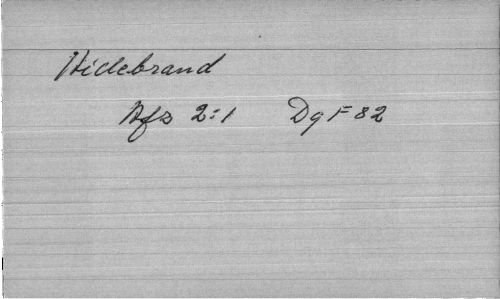 Hildebrand
Afz 2:1 DgF 82